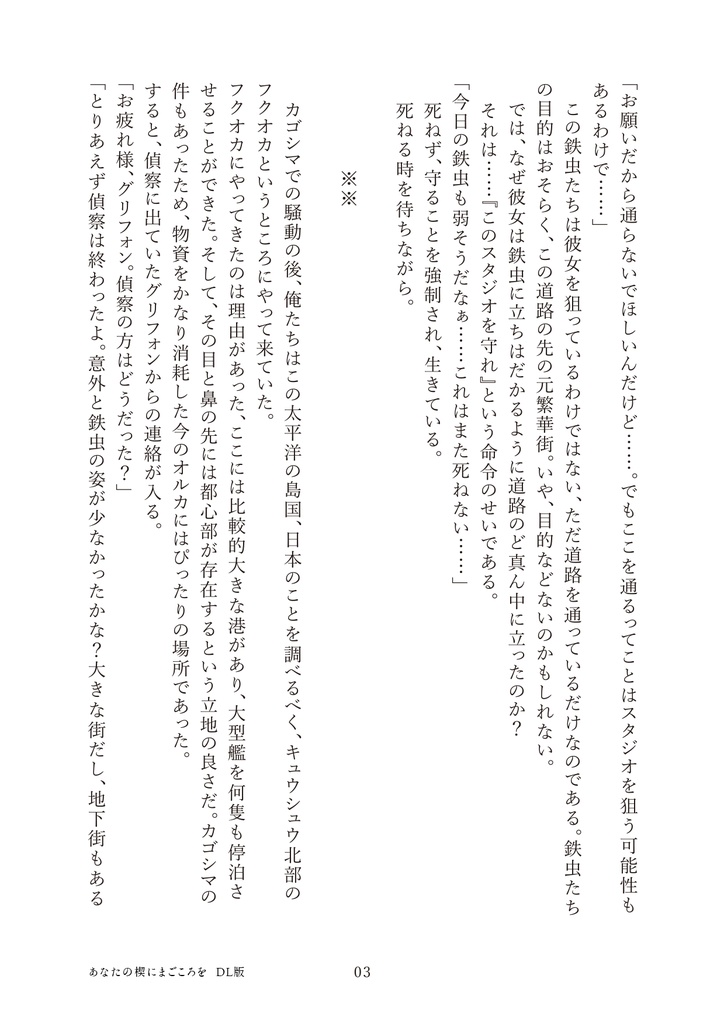 「お願いだから通らないでほしいんだけど……。でもここを通るってことはスタジオを狙う可能性も
あるわけで……」
この鉄虫たちは彼女を狙っているわけではない、ただ道路を通っているだけなのである。鉄虫たち
の目的はおそらく、この道路の先の元繁華街。いや、目的などないのかもしれない。
では、なぜ彼女は鉄虫に立ちはだかるように道路のど真ん中に立ったのか？
それは……『このスタジオを守れ』という命令のせいである。
「今日の鉄虫も弱そうだなぁ……これはまた死ねない……」
死ねず、守ることを強制され、生きている。
死ねる時を待ちながら。
※※
カゴシマでの騒動の後、俺たちはこの太平洋の島国、日本のことを調べるべく、キュウシュウ北部の
フクオカというところにやって来ていた。
フクオカにやってきたのは理由があった、ここには比較的大きな港があり、大型艦を何隻も停泊さ
せることができた。そして、その目と鼻の先には都心部が存在するという立地の良さだ。カゴシマの
件もあったため、物資をかなり消耗した今のオルカにはぴったりの場所であった。
すると、偵察に出ていたグリフォンからの連絡が入る。
「お疲れ様、グリフォン。偵察の方はどうだった？」
「とりあえず偵察は終わったよ。意外と鉄虫の姿が少なかったかな？大きな街だし、地下街もある
あなたの楔にまごころを DL版
03